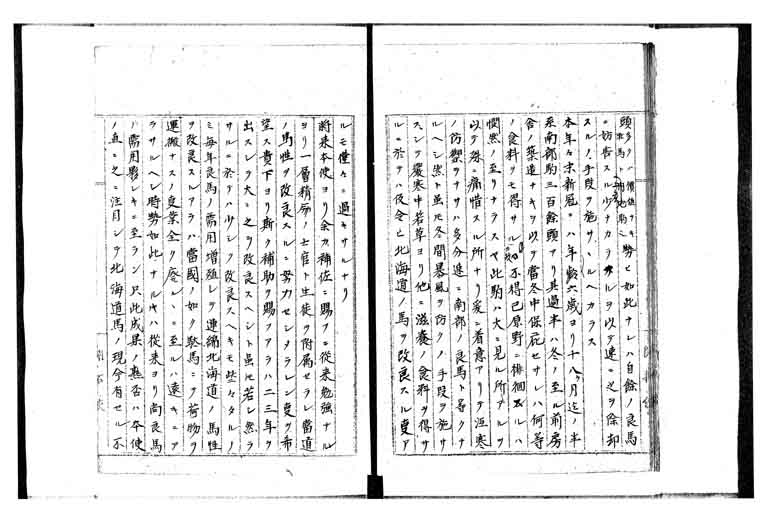 頭多クシ價值ヲキ勢ヒ如此ナレハ自餘ノ良馬
ニ妨害スル少ナカラサルヲ以テ速ニ之ヲ除却
スルノ手段ヲ施サヽルヘカラス
本年々末新冠ニハ年齡六歳ヨリ十八ヶ月迄ノ牛
系南部駒三百餘頭アリ其過半ハ冬ノ至ル前房
舎ノ築造ナキヲ以テ當冬中保庇セサレハ何等
ノ食料ヲモ得サル如ク不得已原野ニ徘徊スルハ
憫然ノ至リナラスヤ此駒ハ大ニ見ル所アルヲ
以テ殊ニ痛惜スル所ナリ爰ニ着意アリテ沍寒
ノ防禦ヲナサハ多分進ニ南部ノ良馬ト爲クナ
ルヘシ然ト虽モ冬間暴風ヲ防クノ手段ヲ施サ
スシテ嚴寒中若草ヨリ他ニ滋養ノ食料ヲ得サ
ルニ於テハ仮令ヒ北海道ノ馬ヲ改良スル叓ア
ルモ僅々ニ過キサルナリ
將来本使ヨリ余カ補佐ニ賜フニ從来勉強ナル
ヨリ一層精勵ノ士官ト生徒ヲ附属セラレ當道
ノ馬性ヲ改良スルニ努力センメラレン叓ヲ希
望ス貴下ヨリ斯ク補助ヲ賜フアラハ二三年ヲ
出スシテ大ニ之ヲ改良スヘシト虽モ若シ然ラ
サルニ於テハ少シク改良スヘキモ些々タルノ
ミ毎年良馬ノ需用増殖シテ連綿北海道ノ馬性
ヲ改良スルアラハ當國ノ如ク駄馬ニテ荷物ヲ
運搬ナスノ良業全ク廢ルヽニ至ルハ遠キニア
ラサルヘシ時勢如此ナルキハ從来ヨリ尚良馬
ハ需用夥シキニ至ラン只此成果ノ應否ハ本使
ノ直ニ之ニ注目シテ北海道馬ノ現今有セル不